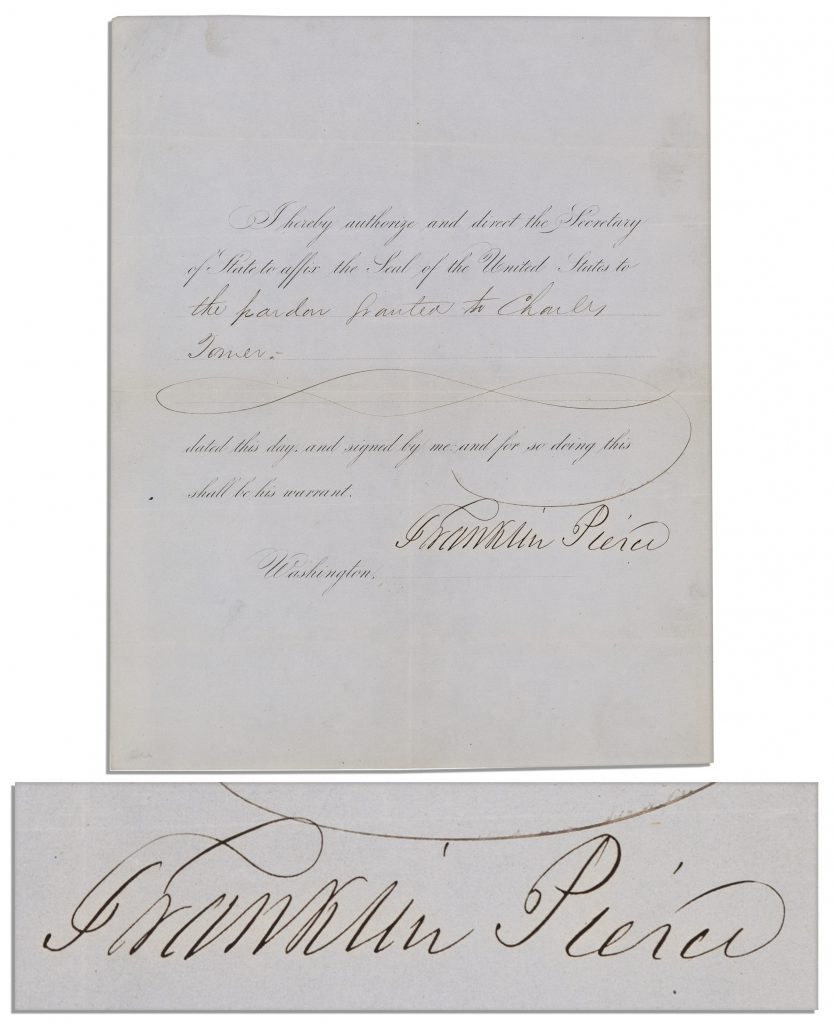 I hereby authorize and direct the Secretary
of State to affix the Seal of the United States to
the pardon granted to Charles
Tomer.-
dated this day, and signed by me: and for so doing this
shall be his warrant.
Franklin Pierce
Washington,
Franklin Pierce